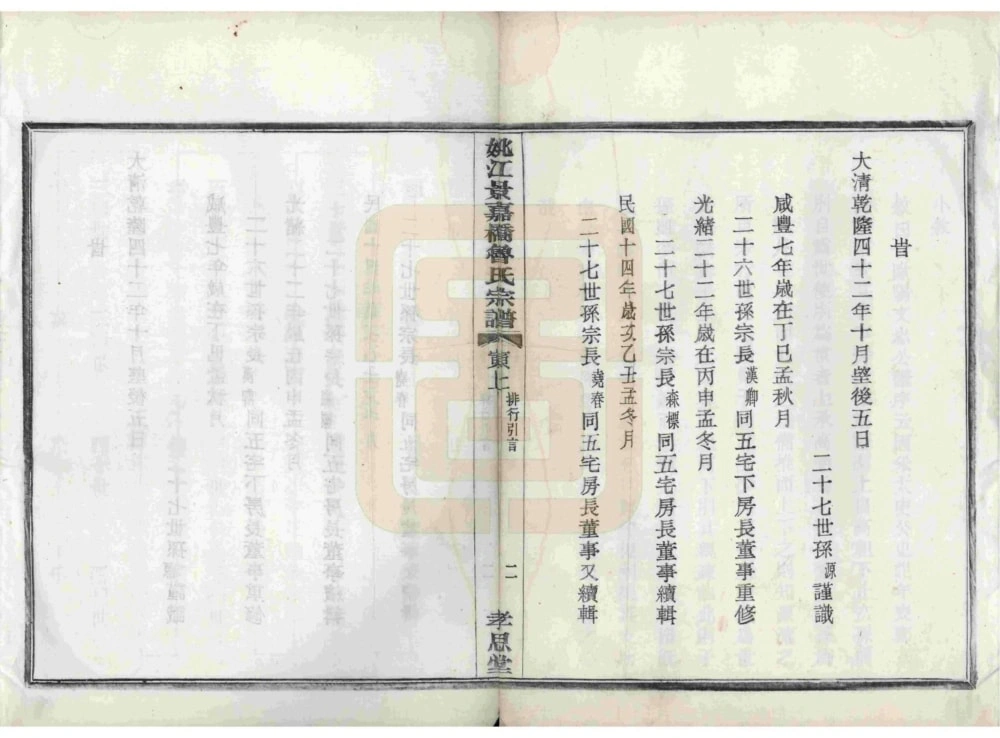 旹
大清乾隆四十二年十月望後五日
二十七世孫源謹識
咸豐七年歲在丁巳孟秋月
二十六世孫宗長漢卿同五宅下房長董事重修
光緒二十二年歲在丙申孟冬月
二十七世孫宗長森標同五宅房長董事續輯
民國十四年歲次乙丑孟冬月
二十七世孫宗長堯春同五宅房長董事又續輯
姚江景嘉橋魯氏宗譜 寅上 排行引言 二 孝思堂